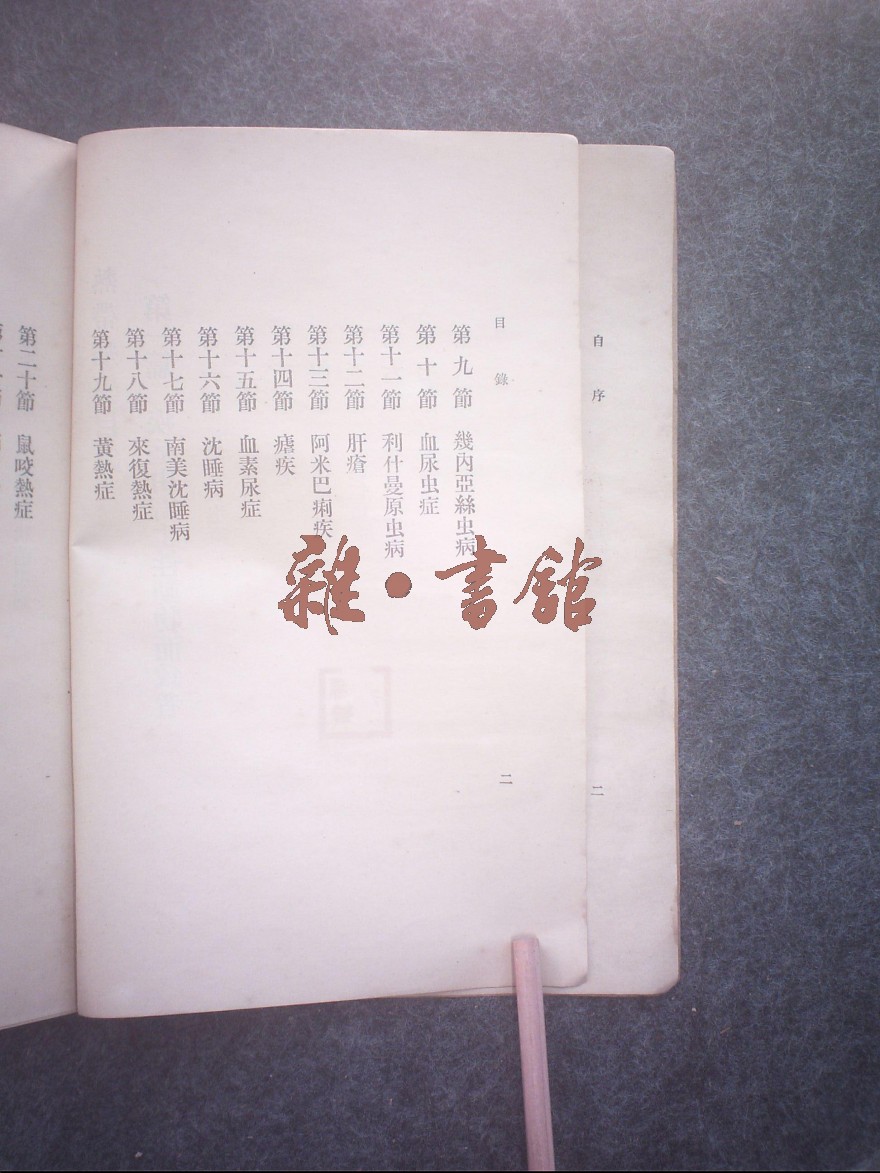 自序
二
目錄
第九節 幾內亞絲虫病
第十節 血尿虫症
第十一節 利什曼原虫病
第十二節 肝瘡
第十三節 阿米巴痢疾
第十四節 瘧疾
第十五節 血素尿症
第十六節 沈睡病
第十七節 南美沈睡病
第十八節 來復熱症
第十九節 黃熱症
二
第二十節 鼠咬熱症
雜·書館